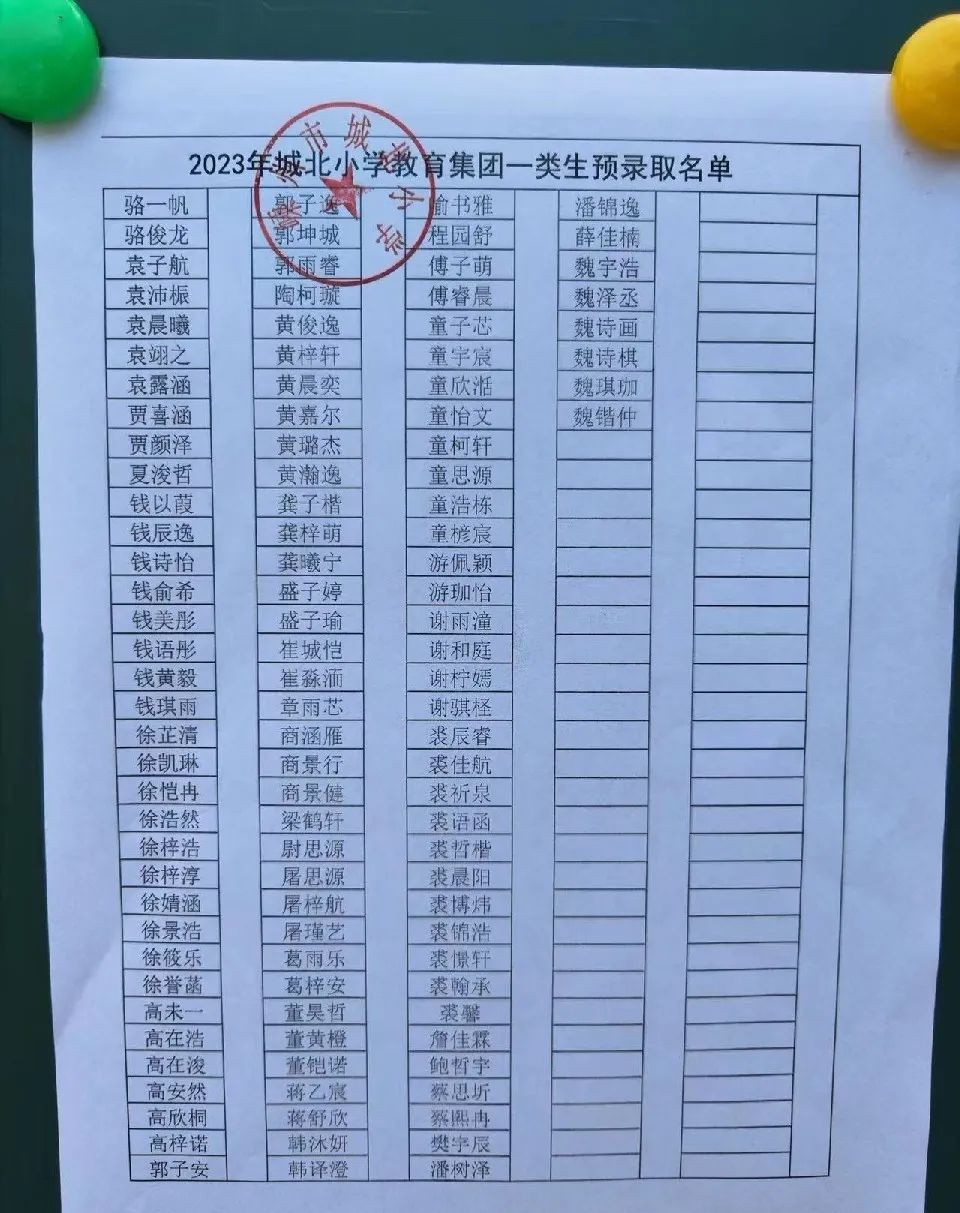 2023年城北小学教育集团一类生预录取名单
市城北小学
骆一帆 郭子逸 俞书雅 潘锦逸
骆俊龙 郭坤城 程园舒 薛佳楠
袁子航 郭雨睿 傅子萌 魏宇浩
袁沛桭 陶柯璇 傅睿晨 魏泽丞
袁晨曦 黄俊逸 童子芯 魏诗画
袁翊之 黄梓轩 童宇宸 魏诗棋
袁露涵 黄晨奕 童欣湉 魏琪珈
贾喜涵 黄嘉尔 童怡文 魏锴仲
贾颜泽 黄璐杰 童柯轩
夏浚哲 黄瀚逸 童思源
钱以葭 龚子楷 童浩栋
钱辰逸 龚梓萌 童榇宸
钱诗怡 龚曦宁 游佩颖
钱俞希 盛子婷 游珈怡
钱美彤 盛子瑜 谢雨潼
钱语彤 崔城恺 谢和庭
钱黄毅 崔淼湎 谢柠嫣
钱琪雨 章雨芯 谢骐柽
徐芷清 商涵雁 裘辰睿
徐凯琳 商景行 裘佳航
徐恺冉 商景健 裘祈泉
徐浩然 梁鹤轩 裘语函
徐梓浩 尉思源 裘哲楷
徐梓淳 屠思源 裘晨阳
徐婧涵 屠梓航 裘博炜
徐景浩 屠瑾艺 裘锦浩
徐筱乐 葛雨乐 裘憬轩
徐誉菡 葛梓安 裘翰承
高未一 董昊哲 裘馨
高在浩 董黄橙 詹佳霖
高在浚 董铠诺 鲍哲宇
高安然 蒋乙宸 蔡思圻
高欣桐 蒋舒欣 蔡熙冉
高梓诺 韩沐妍 樊宇辰
郭子安 韩译澄 潘树泽